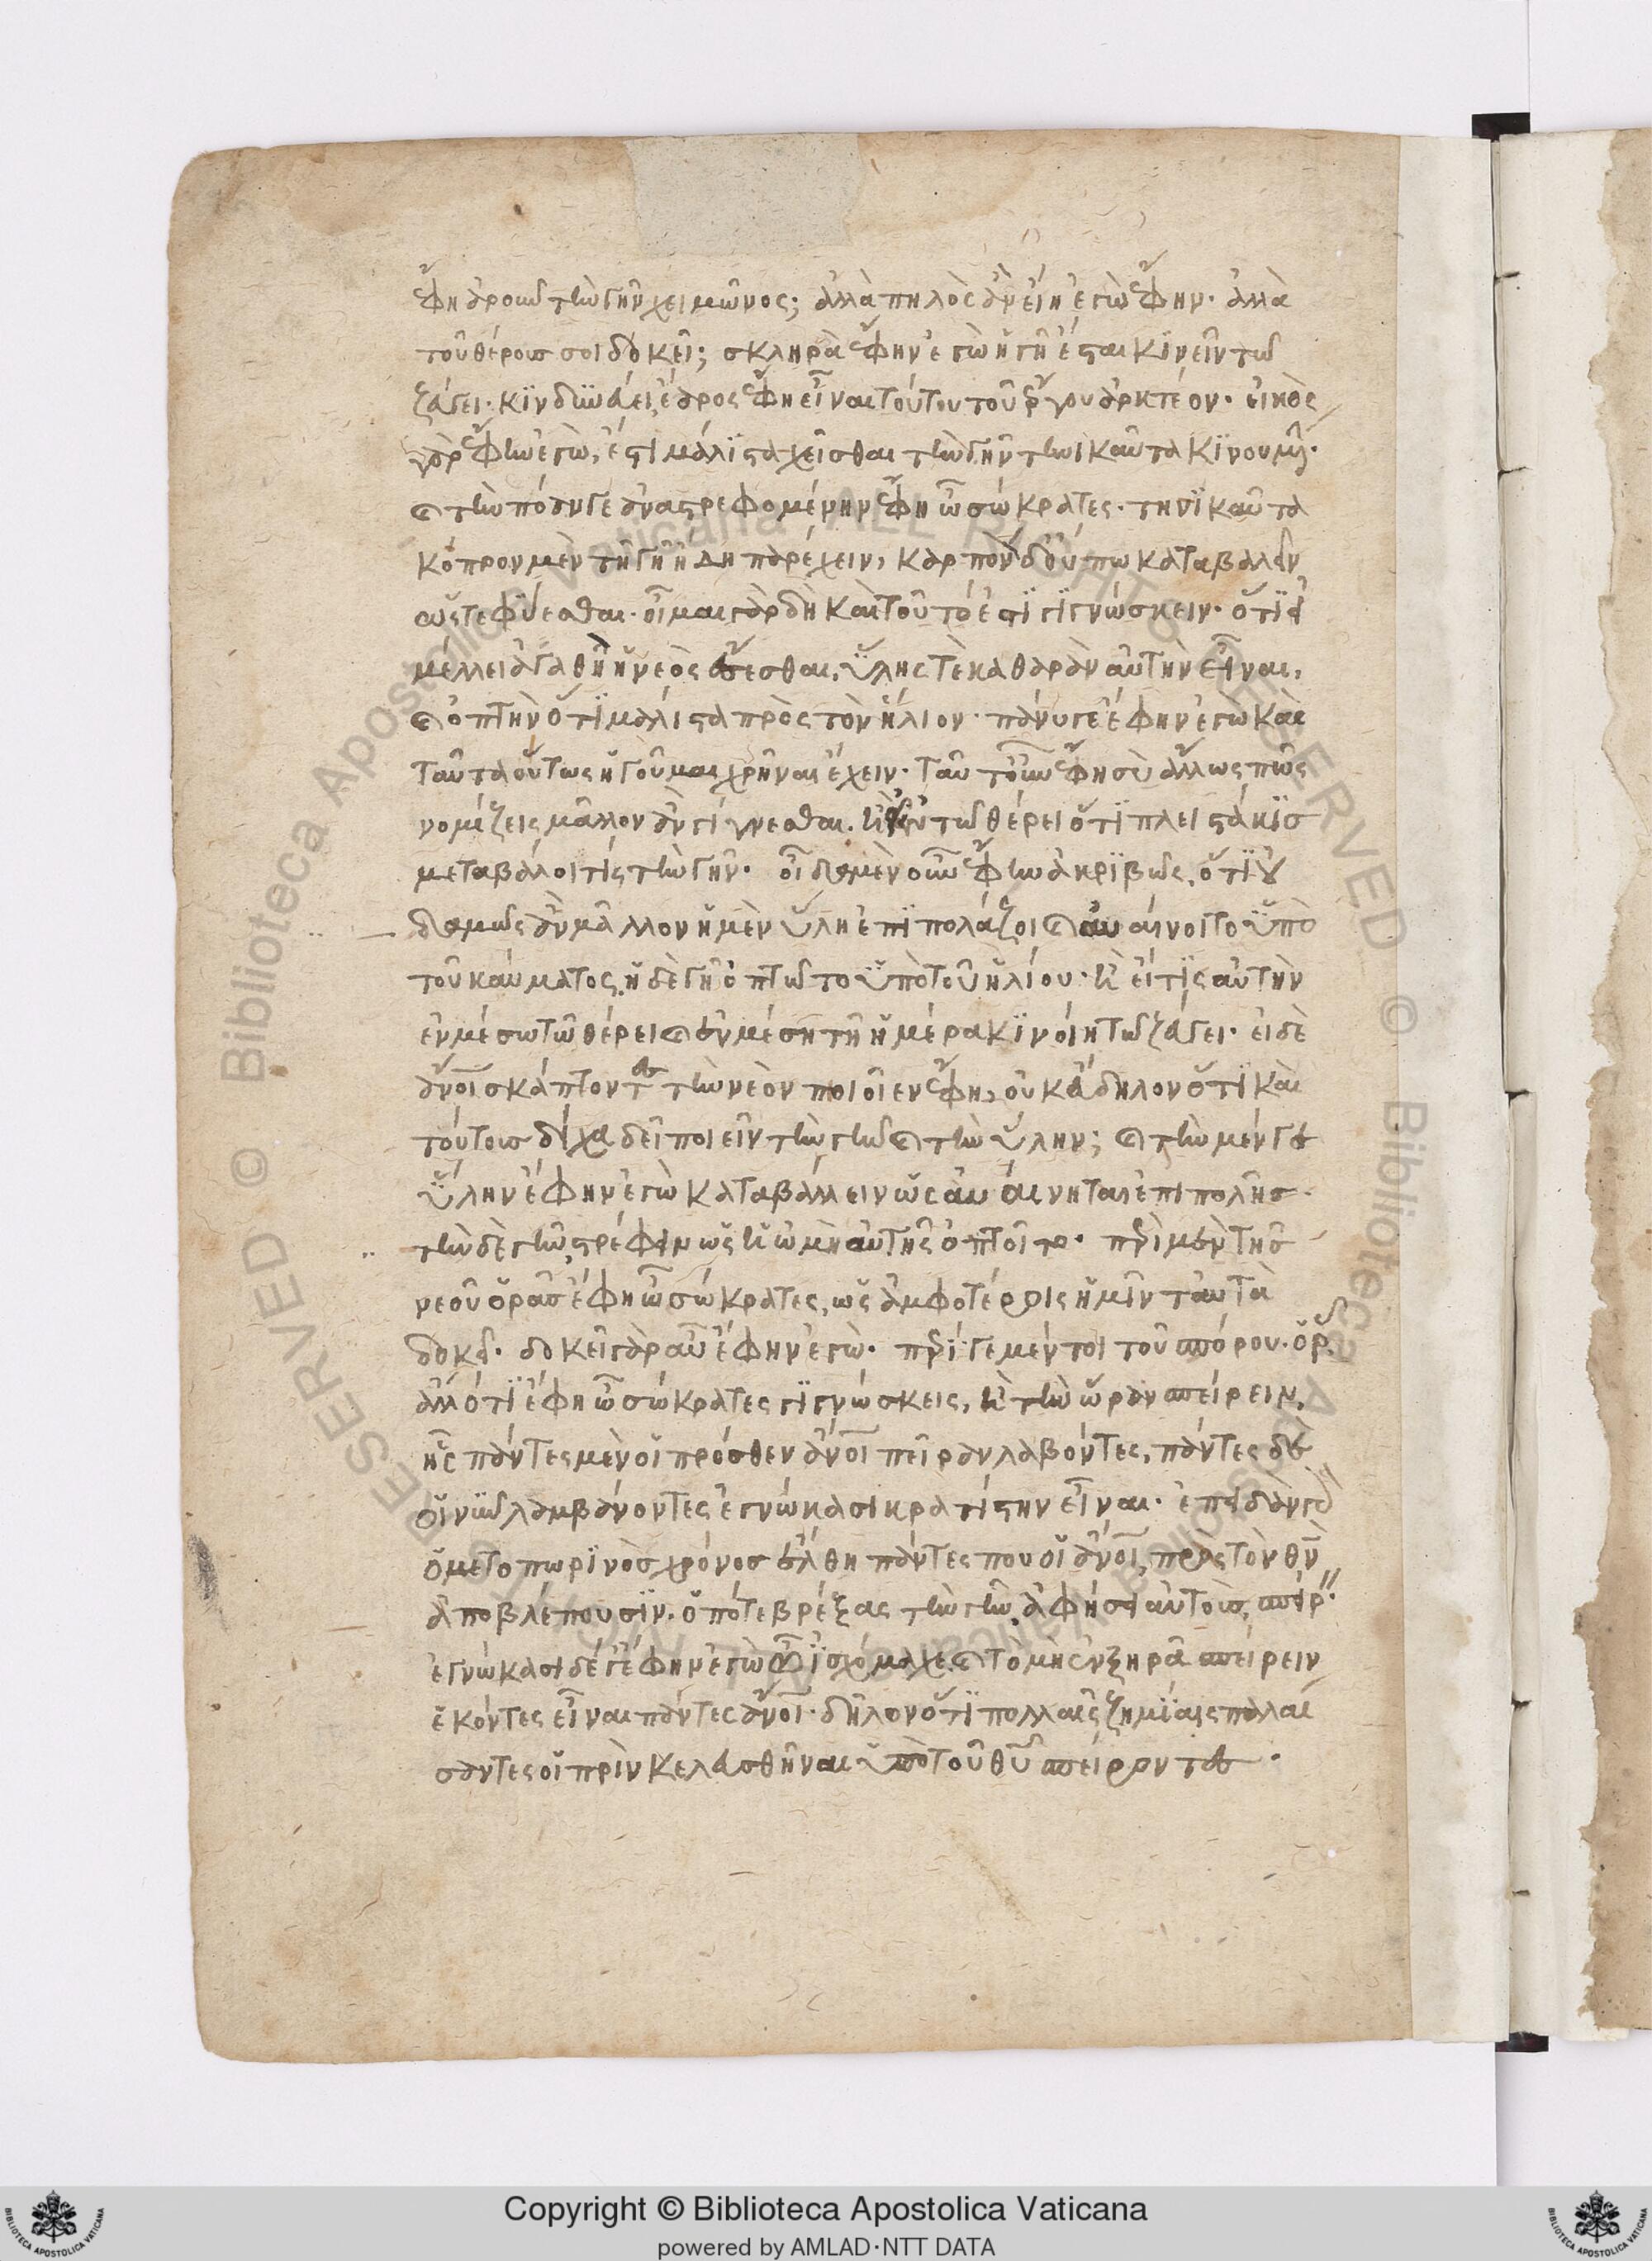 ἔφη ἀροῦν τὴν γῆν χειμῶνος; ἀλλὰ πηλὸς ἂν εἴη ἐγὼ ἔφην· ἀλλὰ
τοῦ θέρους σοι δοκεῖ; σκληρὰ ἔφην ἐγὼ ἡ γῆ ἔσται κϊνεῖν τῶ
ζεύγει· κϊνδυνεύει ἔαρος ἔφη εἶναι τούτου τοῦ ἔργου ἀρκτέον· εἰκὸς
γὰρ ἔφην ἐγὼ, ἐστὶ μάλϊστα χεῖσθαι τὴν γῆν τηνικαῦτα κϊνουμένην·
καὶ τὴν πόαν γε ἀναστρεφομένην ἔφη ὦ σώκρατες· τηνϊκαῦτα
κόπρον μὲν τῆ γῆ ἤδη παρέχειν, καρπὸν δ' οὔπω καταβαλεῖν
ὥστε φύεσθαι· οἶμαι γὰρ δὴ καὶ τοῦτό ἐστϊ γϊγνώσκειν· ὅτϊ εἰ
μέλλει ἀγαθὴ ἡ νεὸς ἔσεσθαι, ὕλης τὲ καθαρὰν αὐτὴν εἶναι,
καὶ ὀπτὴν ὅτϊ μάλιστα πρὸς τὸν ἥλιον· πάνυ γε ἔφην ἐγὼ καὶ
ταῦτα οὕτως ἡγοῦμαι χρῆναι ἔχειν· ταῦτ' οὖν ἔφη σὺ ἄλλως πῶς
νομίζεις μᾶλλον ἂν γίγνεσθαι· ἢ εἰ ἐν τῶ θέρει ὅτϊ πλειστάκϊς
μεταβάλοι τίς τὴν γῆν· οἶδα μὲν οὖν ἔφην ἀκρϊβῶς, ὅτϊ οὐ
δαμῶς ἂν μᾶλλον ἡ μὲν ὕλη ἐπϊπολάζοι καὶ αὐαίνοιτο ὑπὸ
τοῦ καύματος, ἡ δὲ γῆ ὀπτῶτο ὑπὸ τοῦ ἡλίου· ἢ εἴ τϊς αὐτὴν
ἐν μέσω τῶ θέρει καὶ ἐν μέση τῆ ἡμέρα κϊνοίη τῶ ζεύγει· εἰ δὲ
ἄνθρωποι σκάπτοντες τὴν νεὸν ποιοῖεν ἔφη, οὐκ εὔδηλον ὅτϊ καὶ
τούτους δίχα δεῖ ποιεῖν τὴν γῆν καὶ τὴν ὕλην; καὶ τὴν μέν γε
ὕλην ἔφην ἐγὼ καταβάλλειν ὡς αὐαίνηται ἐπιπολῆς·
τὴν δὲ γῆν στρέφειν ὡς ἡ ὠμὴ αὐτῆς ὀπτοῖτο· περὶ μὲν τῆς
νεοῦ ὁρᾶς ἔφη ὦ σώκρατες, ὡς ἀμφοτέροις ἡμῖν ταὐτὰ
δοκεῖ· δοκεῖ γὰρ αὖ ἔφην ἐγώ· περί γε μέντοι τοῦ σπόρου· ὥρ
ἄλλο τϊ ἔφη ὦ σώκρατες γϊγνώσκεις, ἢ τὴν ὥραν σπείρειν,
ἧς πάντες μὲν οἱ πρόσθεν ἄνθρωποι πεῖραν λαβόντες, πάντες δὲ
οἱ νῦν λαμβάνοντες ἐγνώκασι κρατίστην εἶναι· ἐπειδὰν γὰρ
ὁ μετοπωρϊνὸς χρόνος ἔλθη πάντες που οἱ ἄνθρωποι, πρὸς τὸν θεὸν
ἀποβλέπουσϊν· ὁπότε βρέξας τὴν γῆν, ἀφήσει αὐτοὺς σπείρειν·
ἐγνώκασι δέ γ' ἔφην ἐγὼ ὦ ἰσχόμαχε, καὶ τὸ μὴ ἐν ξηρᾶ σπείρειν
ἑκόντες εἶναι πάντες ἄνθρωποι· δῆλον ὅτϊ πολλαῖς ζημίαις παλαί
σαντες οἱ πρὶν κελευσθῆναι ὑπὸ τοῦ θεοῦ σπείροντες·
Copyright © Biblioteca Apostolica Vaticana
powered by AMLAD·NTT DATA